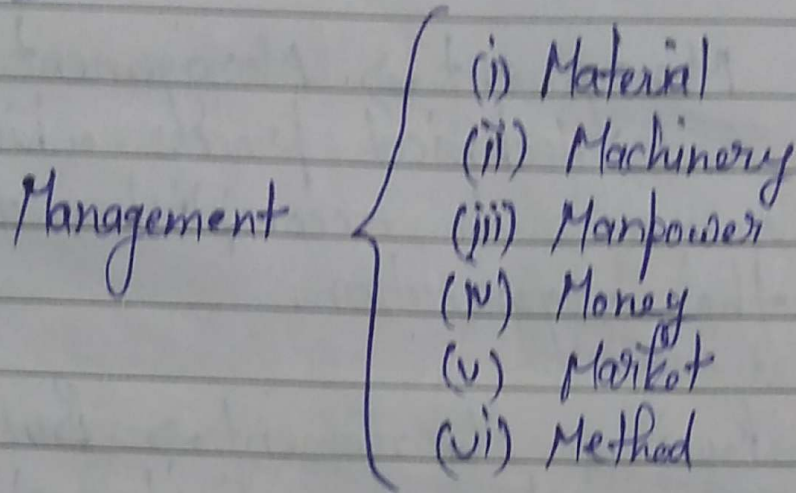 Management
(i) Material
(ii) Machinery
(iii) Manpower
(iv) Money
(v) Market
(vi) Method